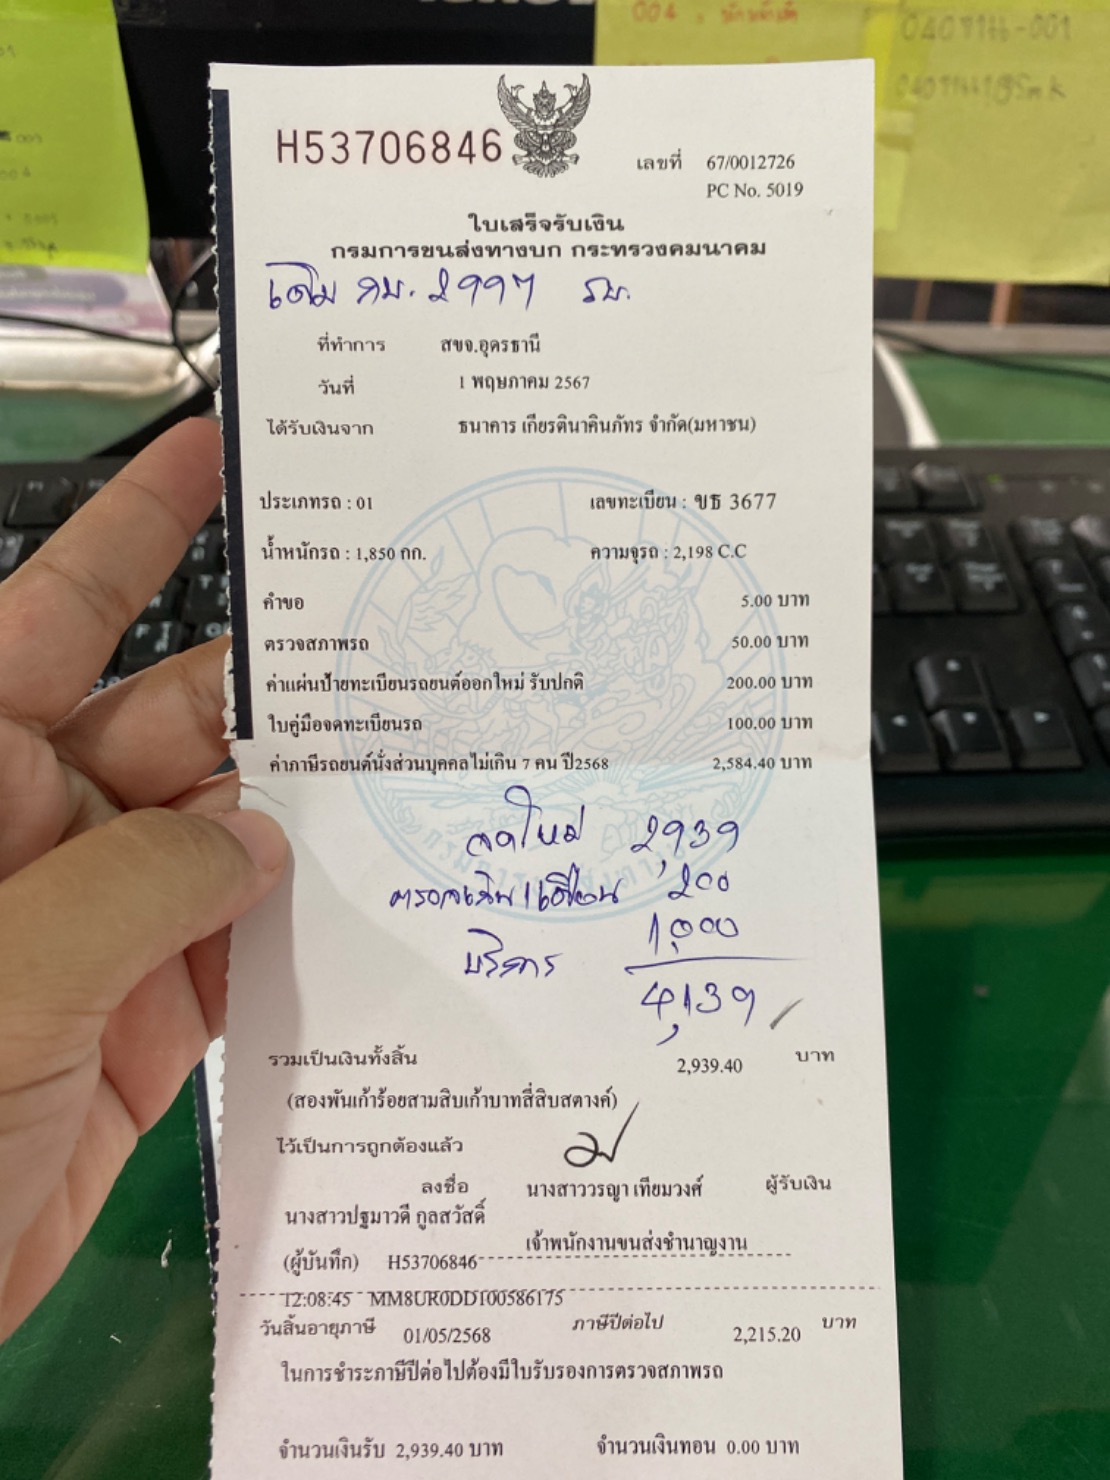 004
040ขาน-001
H53706846
เลขที่ 67/0012726
PC No. 5019
ใบเสร็จรับเงิน
กรมการขนส่งทางบก กระทรวงคมนาคม
เดิม กม. 2997
ที่ทำการ สขจ.อุดรธานี
วันที่ 1 พฤษภาคม 2567
ได้รับเงินจาก ธนาคาร เกียรตินาคินภัทร จำกัด(มหาชน)
ประเภทรถ : 01 เลขทะเบียน : ขธ 3677
น้ำหนักรถ : 1,850 กก. ความจุรถ : 2,198 C.C
คำขอ 5.00 บาท
ตรวจสภาพรถ 50.00 บาท
ค่าแผ่นป้ายทะเบียนรถยนต์ออกใหม่ รับปกติ 200.00 บาท
ใบคู่มือจดทะเบียนรถ 100.00 บาท
ค่าภาษีรถยนต์นั่งส่วนบุคคลไม่เกิน 7 คน ปี2568 2,584.40 บาท
จดใหม่ 2,939
200
1,000
บริการ
4,139
รวมเป็นเงินทั้งสิ้น 2,939.40 บาท
(สองพันเก้าร้อยสามสิบเก้าบาทสี่สิบสตางค์)
ไว้เป็นการถูกต้องแล้ว
ลงชื่อ นางสาววรญา เทียมวงศ์ ผู้รับเงิน
นางสาวปฐมาวดี กูลสวัสดิ์
เจ้าพนักงานขนส่งชำนาญงาน
(ผู้บันทึก) H53706846
12:08:45 MM8UR0DD100586175
วันสิ้นอายุภาษี 01/05/2568 ภาษีปีต่อไป 2,215.20 บาท
ในการชำระภาษีปีต่อไปต้องมีใบรับรองการตรวจสภาพรถ
จำนวนเงินรับ 2,939.40 บาท จำนวนเงินทอน 0.00 บาท